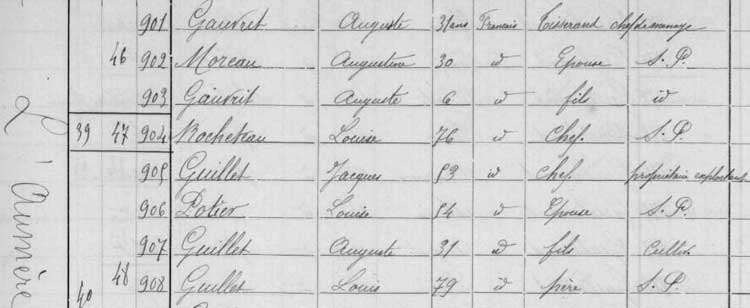 L'Aumère
901 Gauvrit Auguste 31 ans Français Tisserand chef de menage
46 902 Moreau Augustine 30 id Epouse S.P.
903 Gauvrit Auguste 6 id fils id
39 47 904 Rocheteau Louise 76 id Chef S.P.
905 Guillet Jacques 53 id Chef propriétaire exploitant
906 Potier Louise 54 id Epouse S.P.
907 Guillet Auguste 31 id fils Cultiv.
40 48 908 Guillet Louis 79 id père S.P.